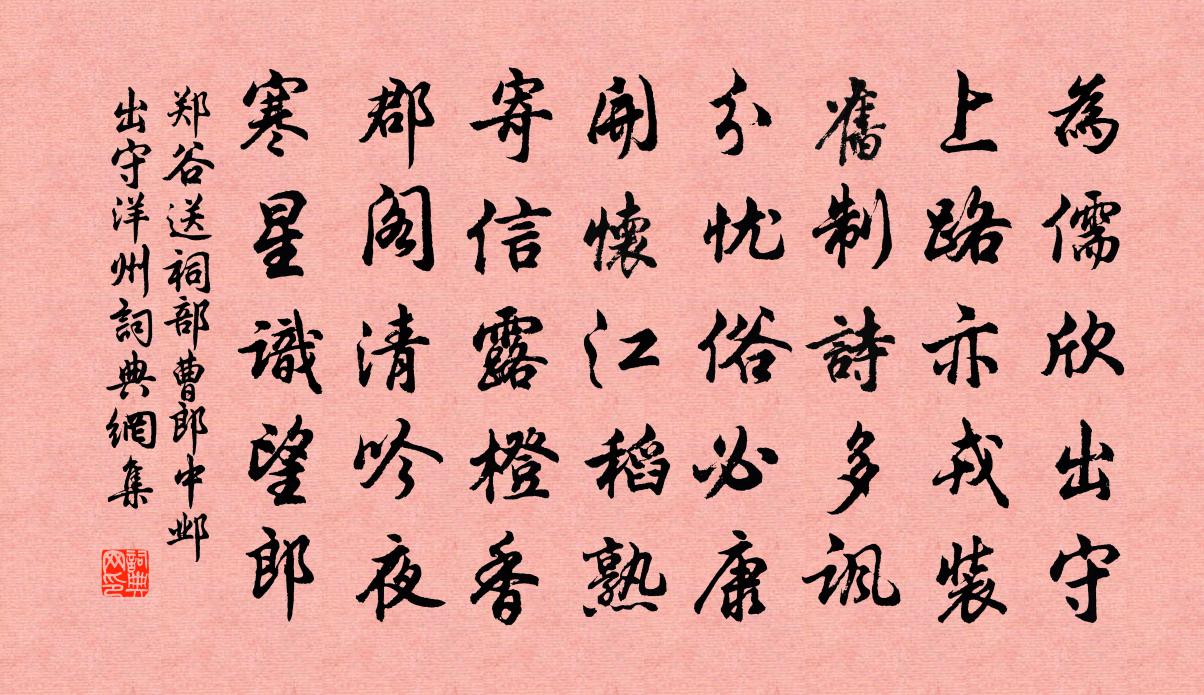 為儒欣出守
上路亦戎裝
舊制詩多諷
分忧俗必康
開懷江稻熟
寄信露橙香
郡阁清吟夜
寒星識望郎
郑谷送祠部曹郎中邺
出守洋州詞典網集
詞典网印